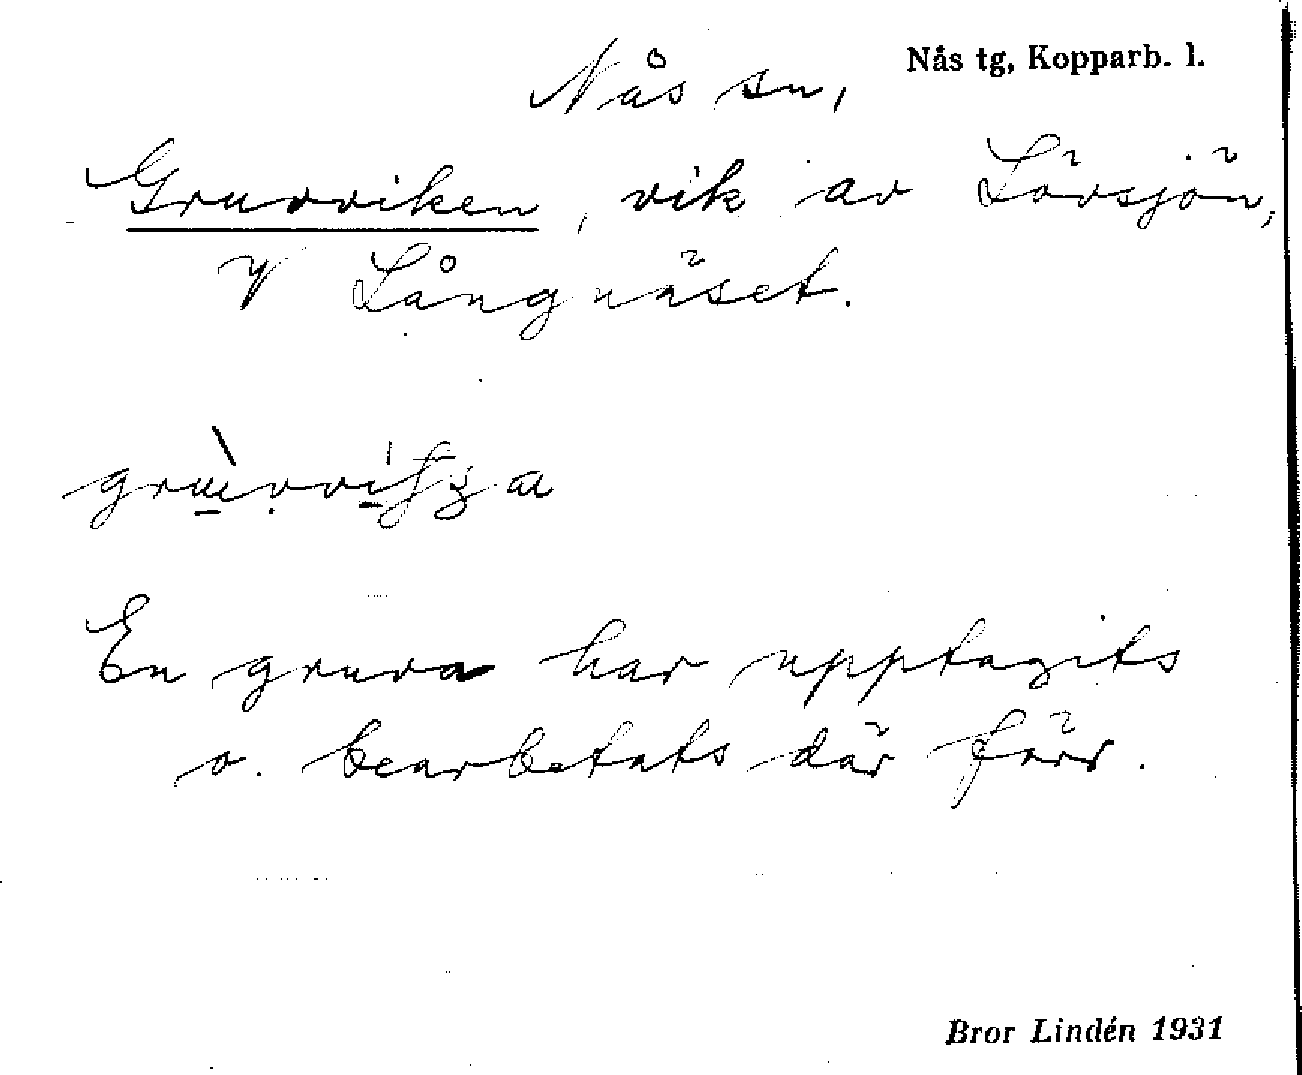 Nås tg, Kopparb. l.
Nås sn,
Gruvviken, vik av Lövsjön,
V Långnäset.
En gruva har upptagits
o. bearbetats där förr.
Bror Lindén 1931